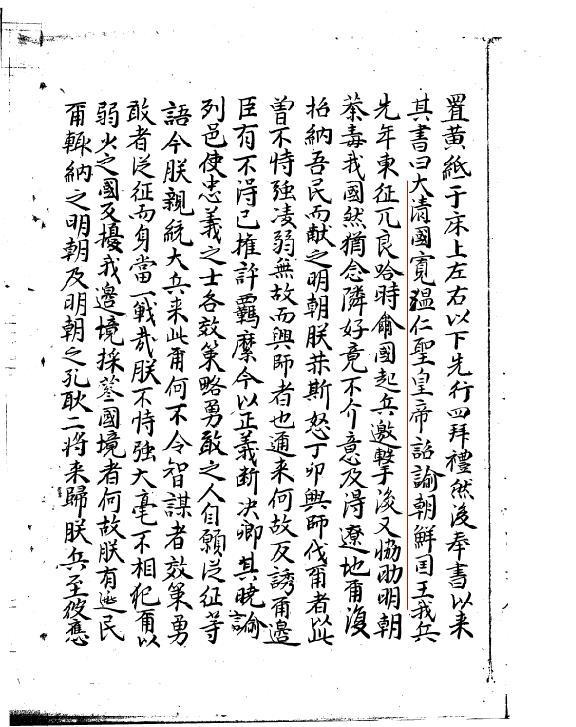 置黃紙于床上左右以下先行四拜禮然後奉書以来
其書曰大清國寬溫仁聖皇帝詔諭朝鮮囯王我兵
先年東征兀良哈時爾國起兵邀擊後又恊助明朝
荼毒我國然猶念隣好竟不介意及淂遼地爾復
招納吾民而献之明朝朕茲斯怒丁卯興師伐爾者以此
曽不恃强凌弱無故而興師者也邇来何故反誘爾邊
臣有不淂已權許羈縻今以正義斷决卿其曉諭
列邑使忠義之士各效策略勇敢之人自願従征等
語今朕親統大兵来此爾何不令智謀者效策勇
敢者従征而身當一戰㢤朕不恃强大毫不相犯爾以
弱火之國反擾我邊境採蔘國境者何故朕有逃民
爾輙納之明朝及明朝之孔耿二将来歸朕兵至彼應